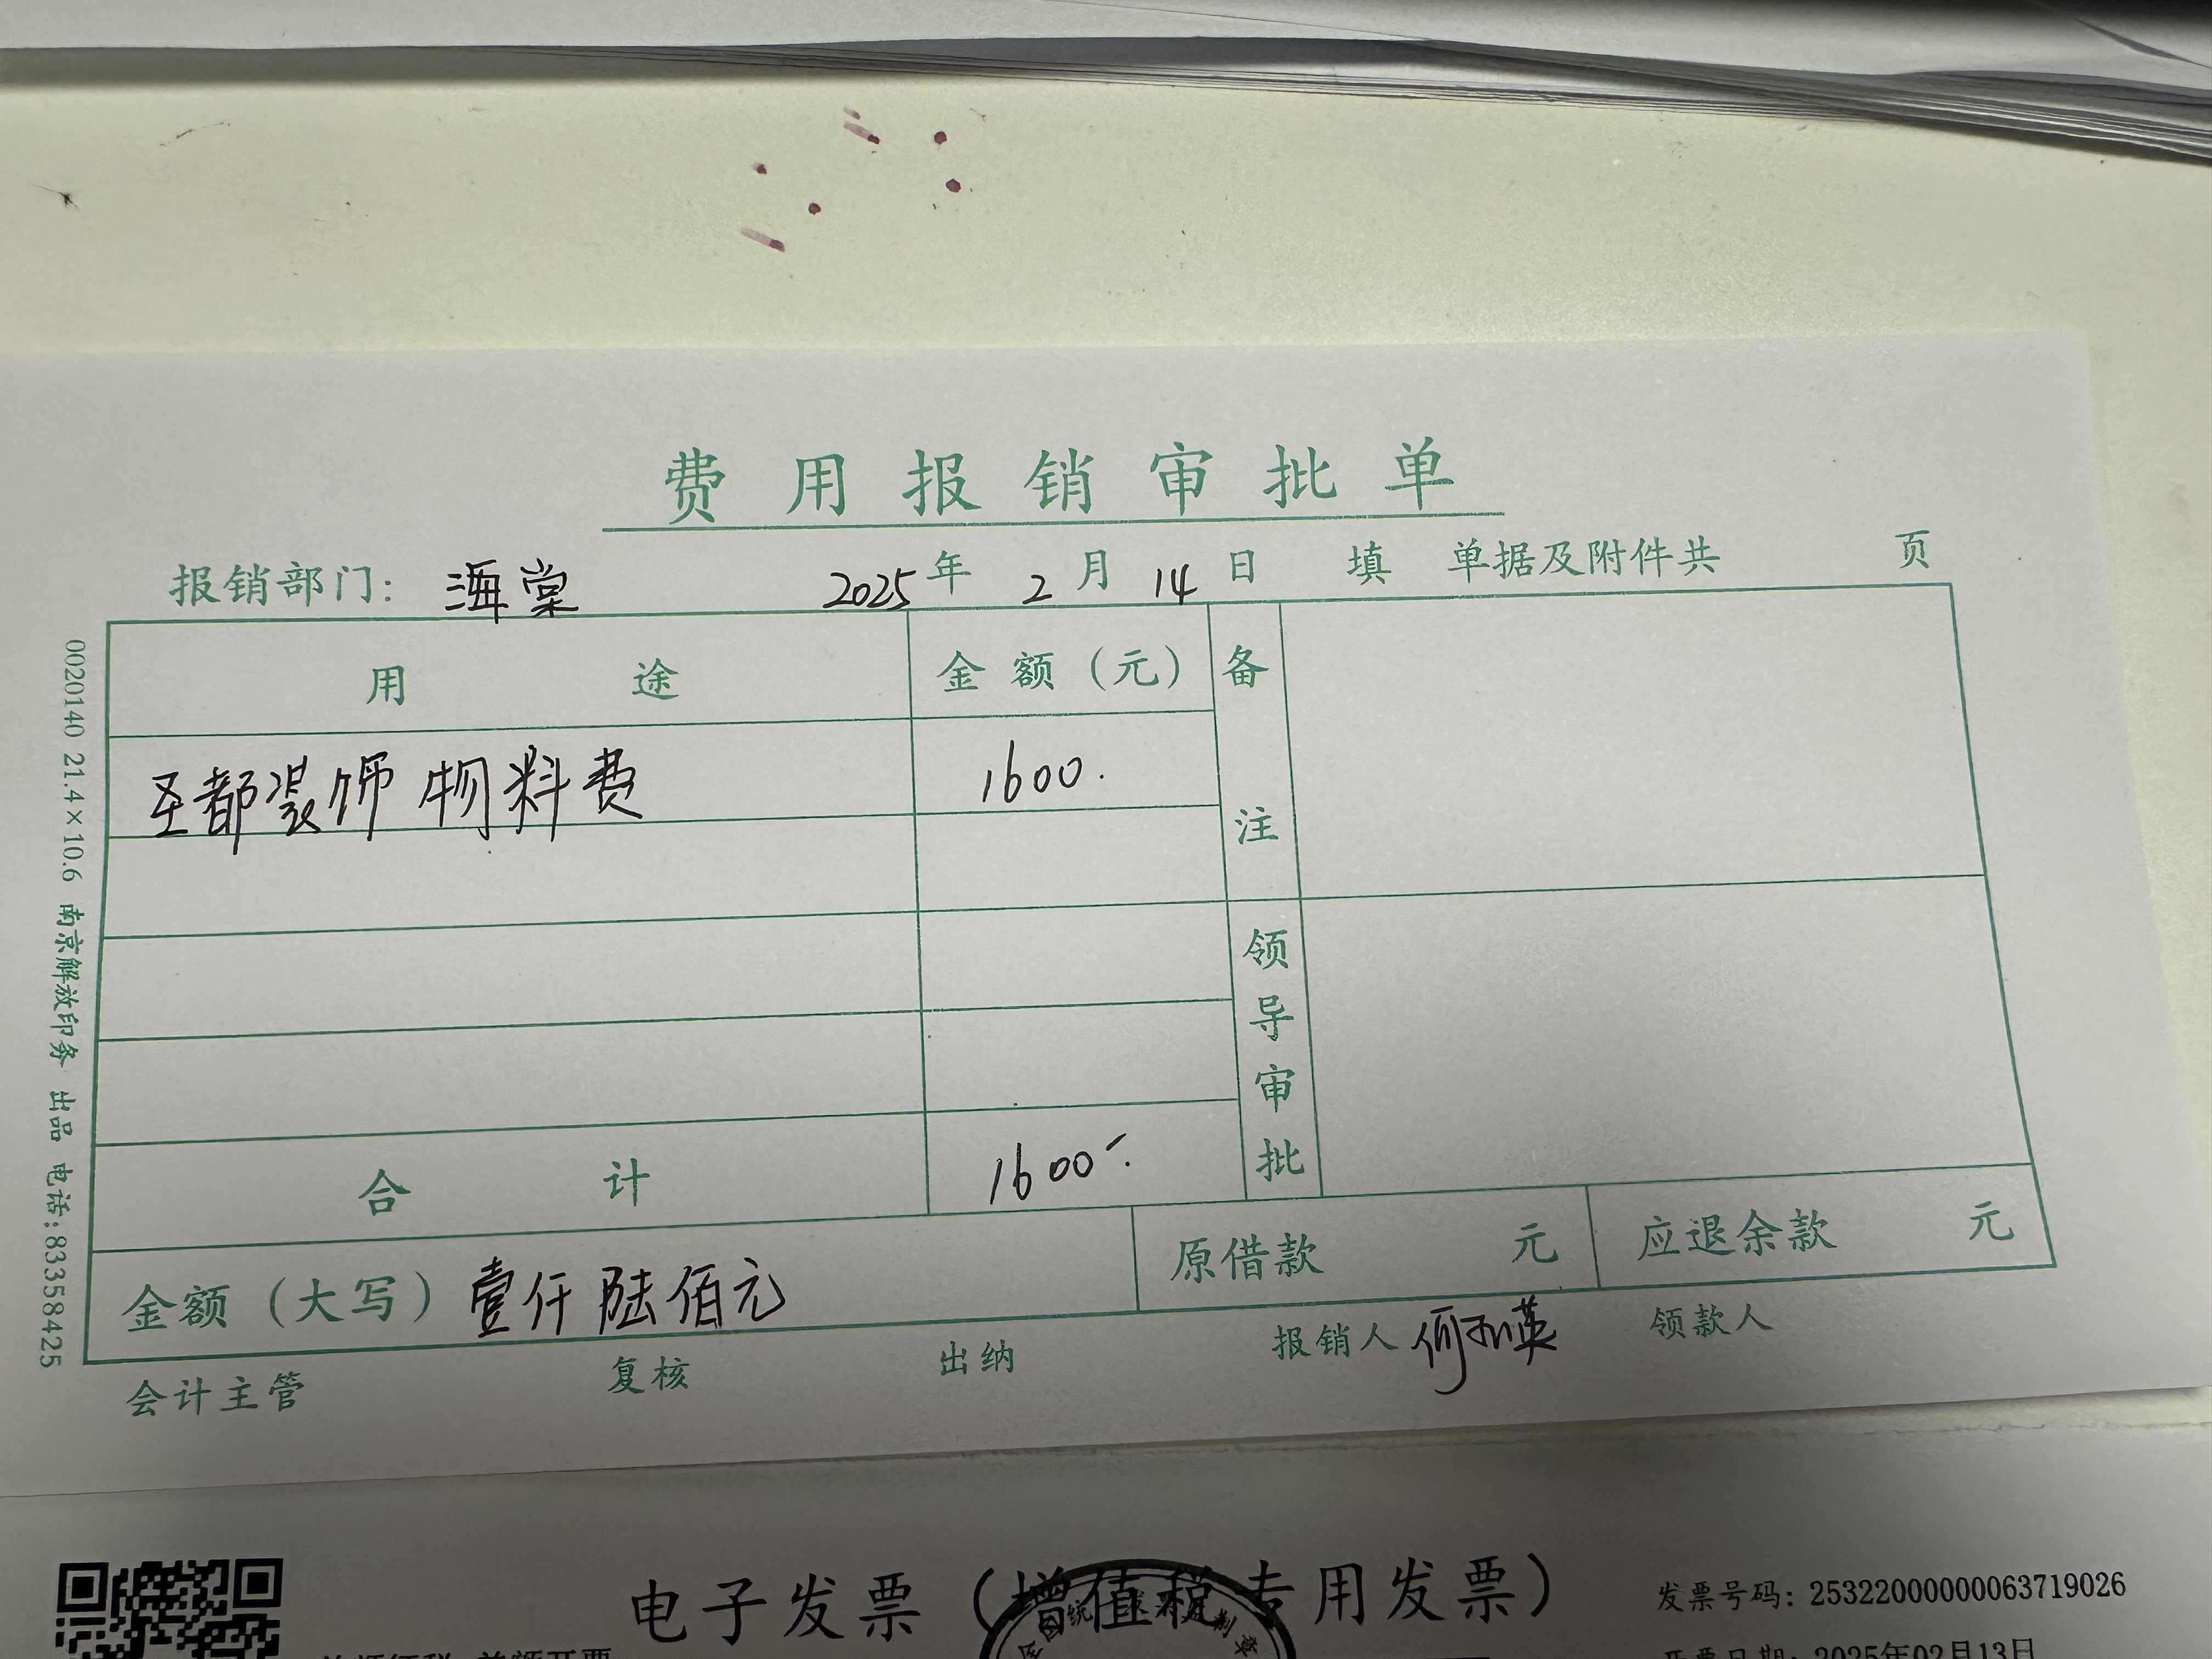 费用报销审批单
报销部门：海棠 2025年2月14日 填 单据及附件共 页
用途 金额（元） 备注
圣都装饰物料费 1600.
领导审批
合计 1600.
金额（大写）壹仟陆佰元 原借款 元 应退余款 元
会计主管 复核 出纳 报销人 领款人
0020140 21.4×10.6 南京解放印务 出品 电话:83358425
电子发票（增值税专用发票） 发票号码：25322000000063719026
开票日期：2025年02月13日